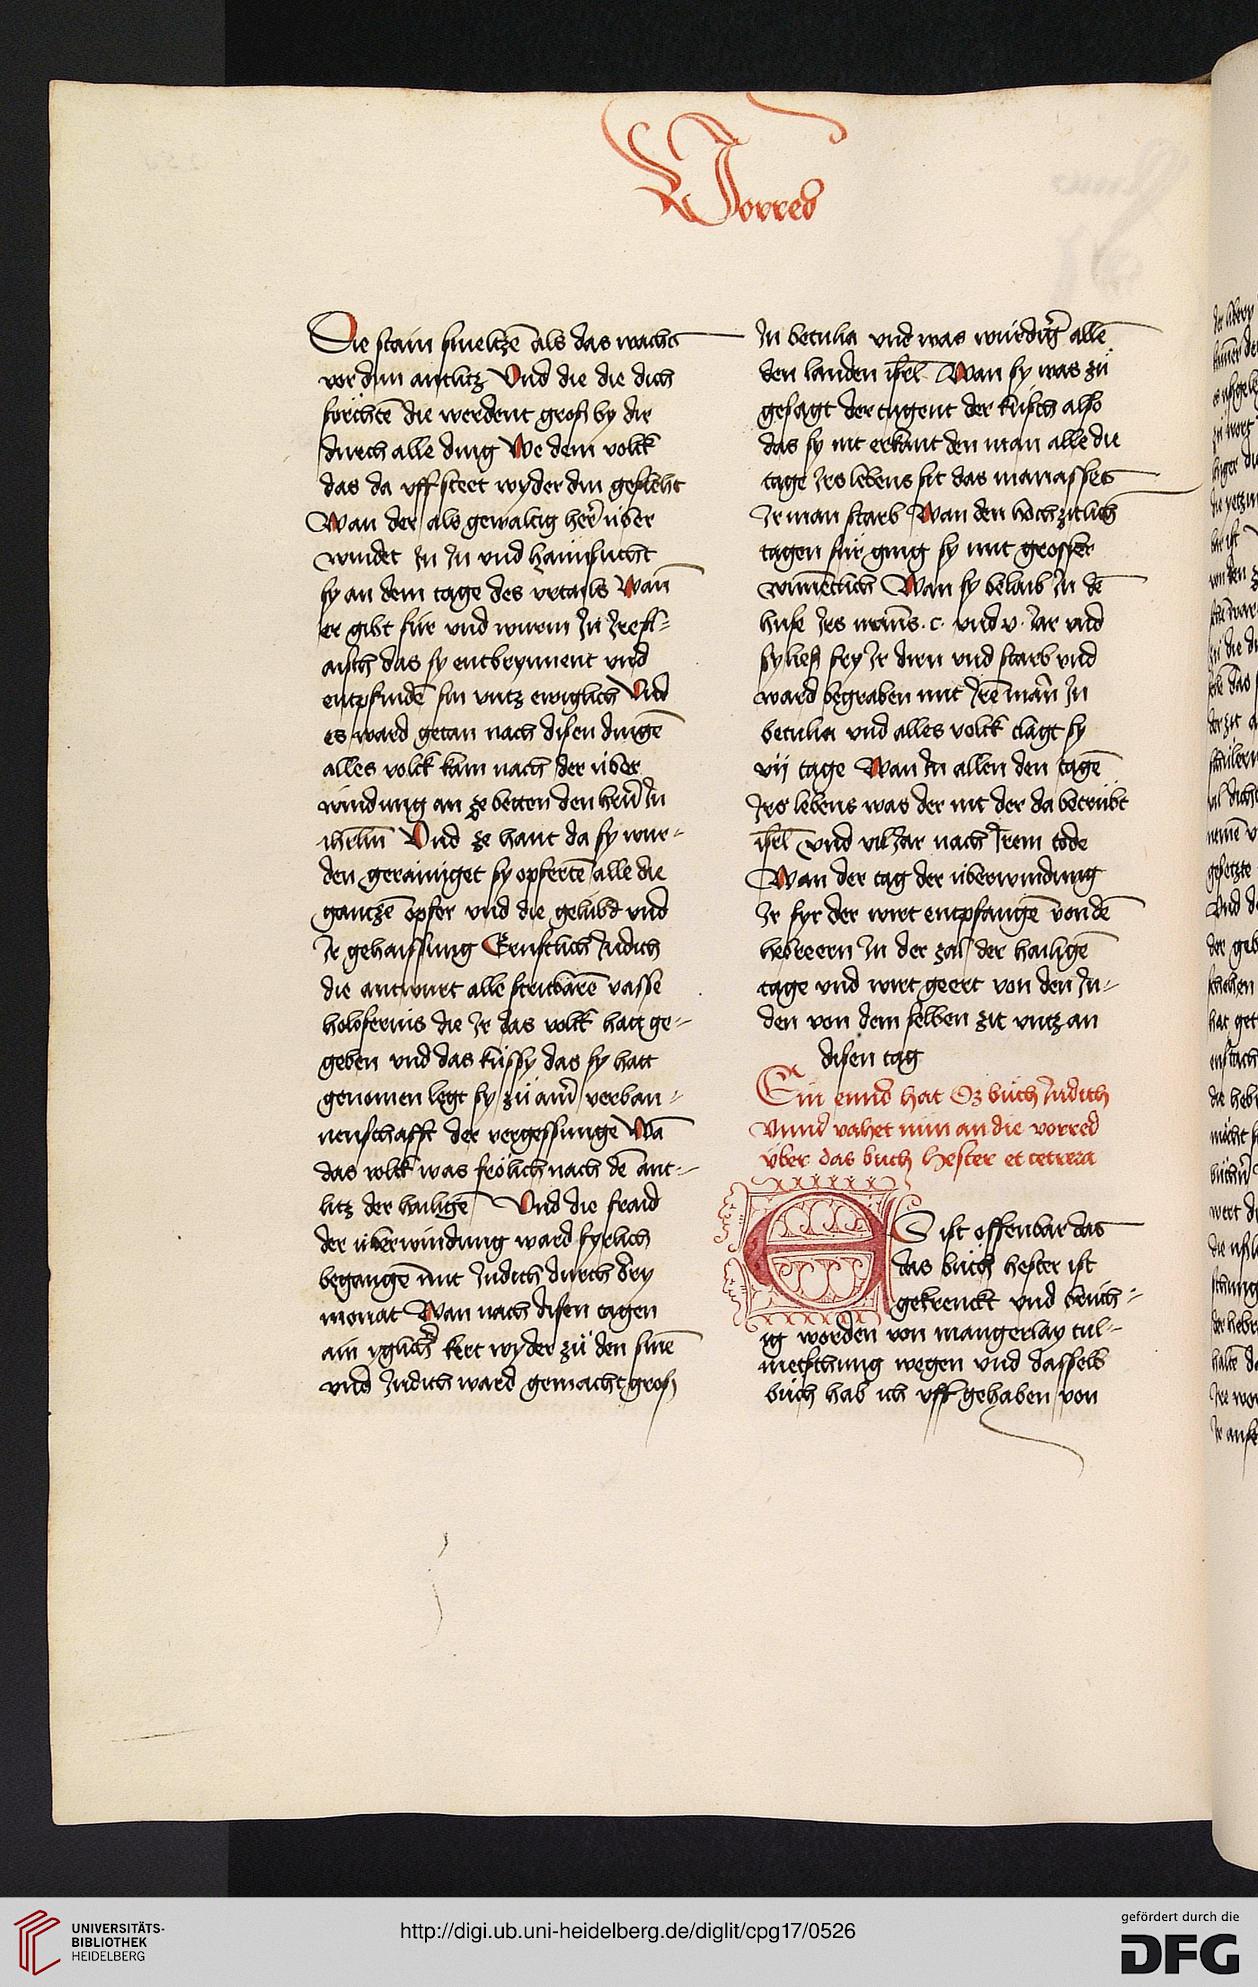 Vorred
Die stain smeltzē als das wachs
vor dim antlitz Vnd die die dich
förchtē die werdent groß by dir
durch alle ding We dem volck
das da vff steet wyder din geslecht
Wan der als gewaltig her̄ über
windet In In vnd haimsucht
sy an dem tage des vrtails Wan̄
er gibt für vnd wurm In Ir
aisch das sy entbrynnent vnd
entpfindē sin vntz ewiglich Vnd
es ward getan nach disen dingē
alles volck kam nach der über
windung an ze betten den herñ In
ihrl̄m Vnd ze hant da sy wur-
den gerainiget sy opfertē alle die
gantzē opfer vnd die gelübd vnd
Ir gehaissung Ernstlich Judith
die antwurt alle stritbarē vasse
holofernis die Ir das volck hatt ge-
geben vnd das küssy das sy hatt
genomen legt sy zü ain̄ verban-
nenschafft der vergessunge Wā
das volck was frölich nach dē ant-
litz der hailigē Vnd die fraid
der überwindung ward fyrlich
begangē mit Judith durch dry
monat Wan nach disen tagen
ain yglich̄ kert wyder zü den sinē
vnd Judith ward gemacht groß
In betulia vnd was wirdiḡ allē
den landen isr̄l Wan sy was zü
gesagt der tugent der küsch also
das sy nit erkant den man alle die
tage Irs lebens sit das manasses
Ir man starb Wan den hochzitlich
tagen für ging sy mit grosser
win̄eclich Wan sy belaib In dē
huse Irs man̄s .c. vnd v. Iar vnd
sy ließ fry Ir dirn vnd starb vnd
ward begraben mit Irē man̄ In
betulia vnd alles volck clagt sy
vij tage Wan In allen den tagē
Irs lebens was der nit der da betrübt
isr̄l vnd vil Iar nach Irem tode
Wan der tag der überwindung
Ir fyr der wirt entpfangē von dē
hebreern In der zal der hailigē
tage vnd wirt geert von den Iu-
den von dem selben zit vntz an
disen tag
Ein ennd hat dz büch Judith
Vnnd vahet nun an die vorred
über das buch Hester et cetera
ES ist offenbar das
das büch hester ist
gekrenckt vnd
ig worden von mangerlay tul-
metschung wegen vnd dasselb
büch hab ich vff gehaben von
UNIVERSITÄTS-
BIBLIOTHEK
HEIDELBERG
http://digi.ub.uni-heidelberg.de/diglit/cpg17/0526
gefördert durch die
DFG